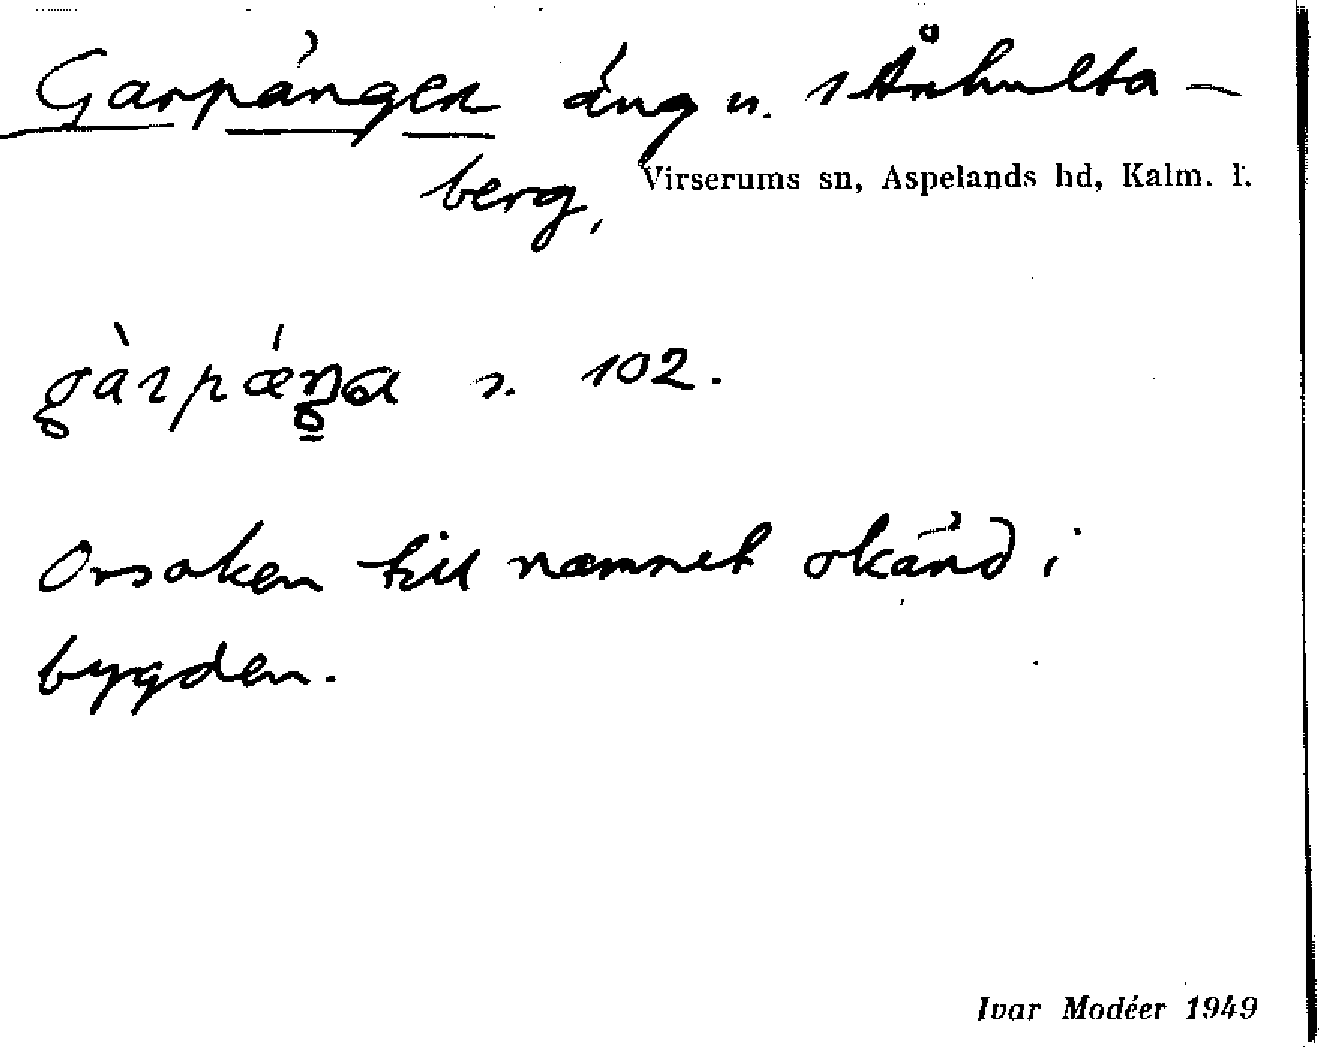 Garpängen äng u. Århulta-
berg, Virserums sn, Aspelands hd, Kalm. l.
gàrpǽŋa s. 102.
Orsaken till namnet okänd i
bygden.
Ivar Modéer 1949